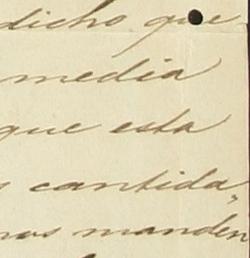 dicho que
media
que esta
s cantida,
nos manden